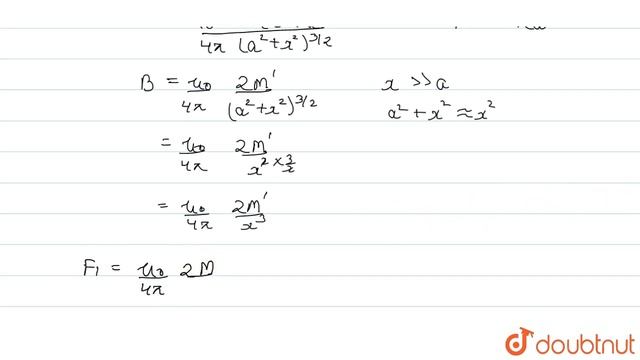 4π (a²+x²)^3/2
B = μ₀/4π 2M'/(a²+x²)^3/2 x >> a
a² + x² ≈ x²
= μ₀/4π 2M'/x^2×3/2
= μ₀/4π 2M'/x³
F₁ = μ₀/4π 2M
doubtnut